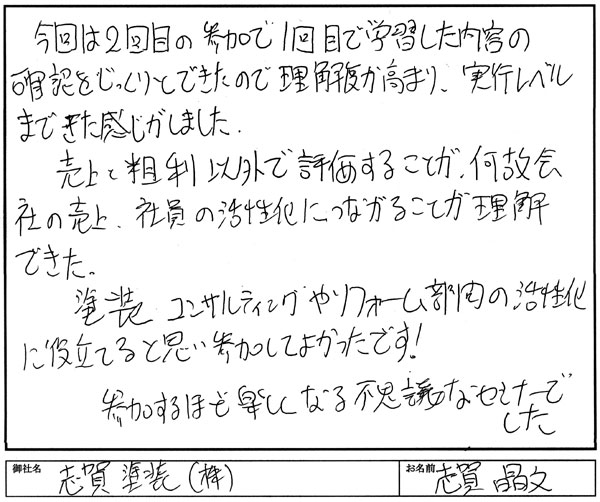 今回は2回目の参加で1回目で学習した内容の
確認をじっくりとできたので理解度が高まり、実行レベル
まできた感じがしました.
売上と粗利以外で評価することが、何故会
社の売上、社員の活性化につながることが理解
できた。
塗装コンサルティングやリフォーム部門の活性化
に役立てると思い参加してよかったです!
参加するほど楽しくなる不思議なセミナーで
した
御社名 志賀塗装(株) お名前 志賀晶文